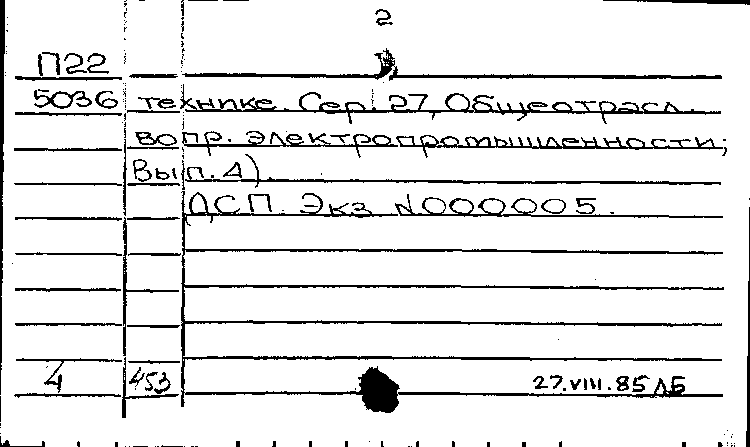 2
П22
5036 технике. Сер. 27, Общеотрасл.
вопр. электропромышленности;
Вып. 4).
ДСП. Экз N000005.
4 453 27.VIII.85 ЛБ